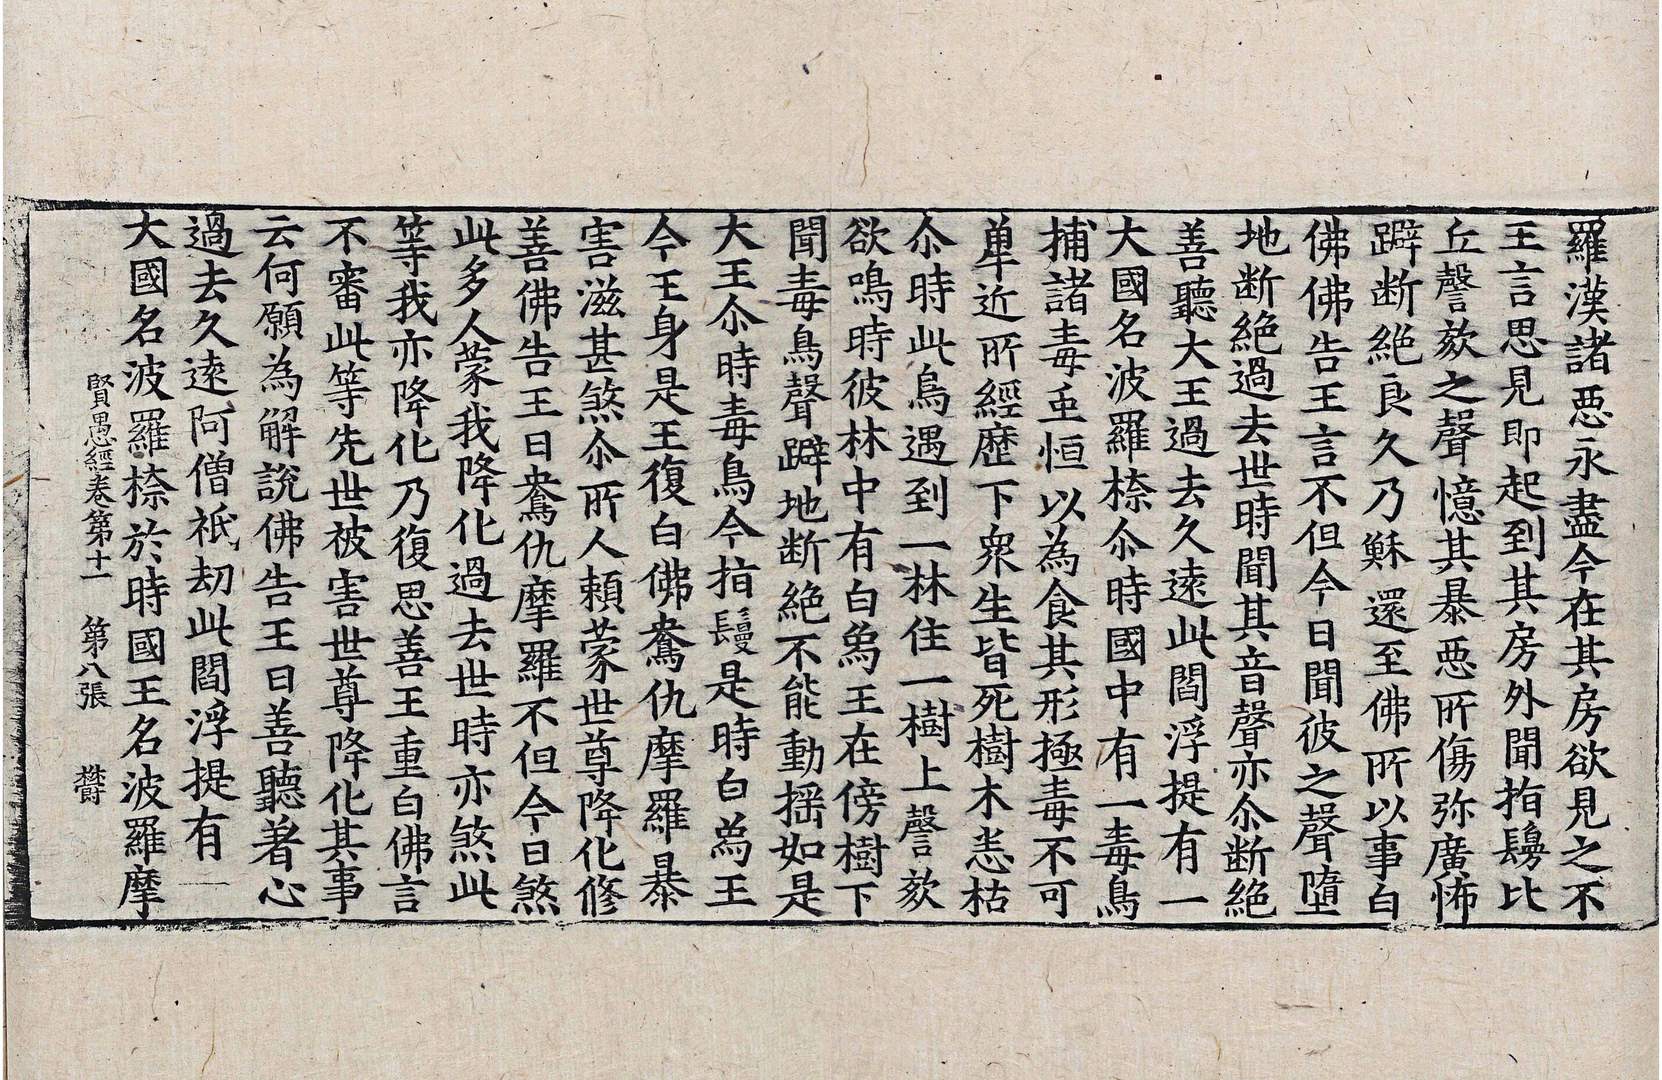 羅漢諸惡永盡今在其房欲見之不
王言思見即起到其房外聞指鬘比
丘謦欬之聲憶其暴惡所傷弥廣怖
躃断絕良久乃穌還至佛所以事白
佛佛告王言不但今日聞彼之聲墮
地断絕過去世時聞其音聲亦尒断絕
善聽大王過去久遠此閻浮提有一
大國名波羅㮈尒時國中有一毒鳥
捕諸毒虫恒以為食其形極毒不可
犇近所經歷下衆生皆死樹木悉枯
尒時此鳥遇到一林住一樹上謦欬
欲鳴時彼林中有白象王在傍樹下
聞毒鳥聲躃地断絕不能動揺如是
大王尒時毒鳥今指鬘是時白為王
今王身是王復白佛鴦仇摩羅暴
害滋甚煞尒所人頼蒙世尊降化修
善佛告王曰鴦仇摩羅不但今日煞
此多人蒙我降化過去世時亦煞此
等我亦降化乃復思善王重白佛言
不審此等先世被害世尊降化其事
云何願為解說佛告王曰善聽著心
過去久遠阿僧祇劫此閻浮提有一
大國名波羅㮈於時國王名波羅摩
賢愚經卷第十一 第八張 欝